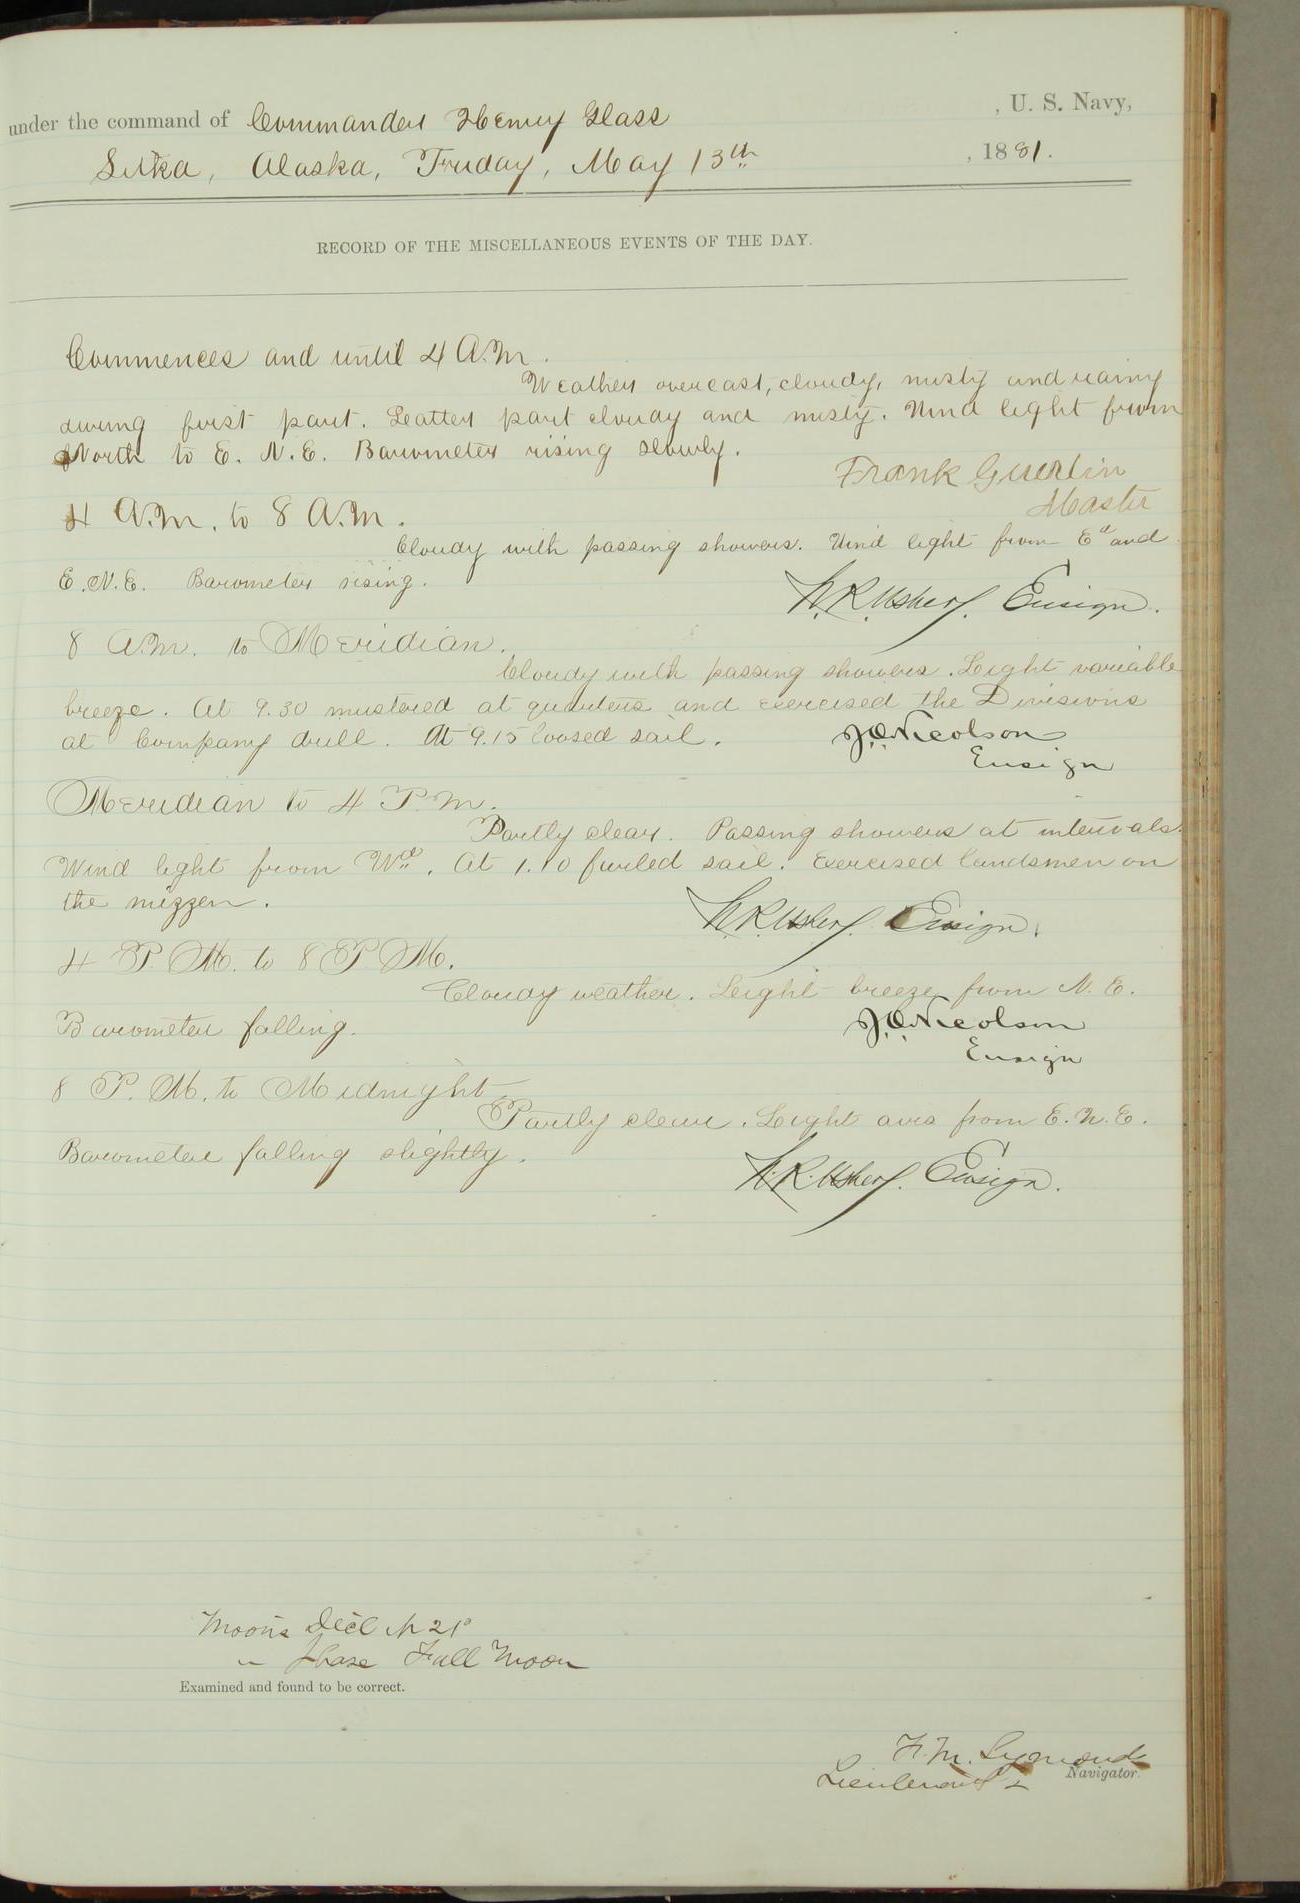 under the command of Commander Henry Glass , U. S. Navy,
Sitka, Alaska, Friday, May 13th , 1881.
RECORD OF THE MISCELLANEOUS EVENTS OF THE DAY.
Commences and until 4 A.M.
Weather overcast, cloudy, misty and rainy
during first part. Latter part cloudy and misty. Wind light from
North to E. N. E. Barometer rising slowly.
Frank Guertin
Master
4 A.M. to 8 A.M.
Cloudy with passing showers. Wind light from Ed and
E. N. E. Barometer rising.
N. R. Usher. Ensign.
8 A.M. to Meridian.
Cloudy with passing showers. Light variable
breeze. At 9.30 mustered at quarters and exercised the Divisions
at Company drill. At 9.15 loosed sail.
J. O. Nicolson
Ensign
Meridian to 4 P.M.
Partly clear. Passing showers at intervals.
Wind light from Wd. At 1.10 furled sail. Exercised landsmen on
the mizzen.
N. R. Usher. Ensign.
4 P. M. to 8 P. M.
Cloudy weather. Light breeze from N. E.
Barometer falling.
J. O. Nicolson
Ensign
8 P. M. to Midnight
Partly clear. Light airs from E. N. E.
Barometer falling slightly.
N. R. Usher. Ensign.
Moon's Decl N 21°
" phase Full Moon
Examined and found to be correct.
F. M. Symonds
Lieutenant & Navigator.